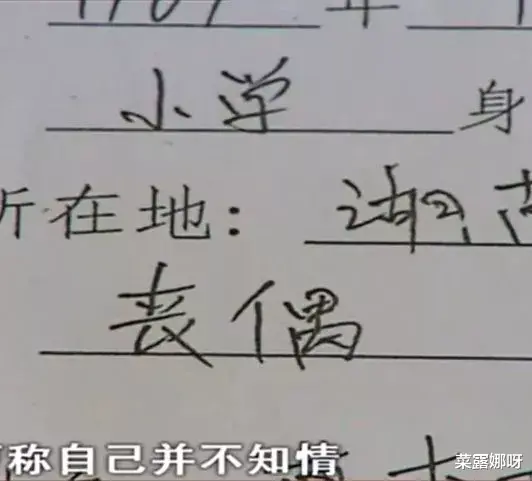 年
小学 身
所在地: 湖南
丧偶
称自己并不知情
菜露娜呀